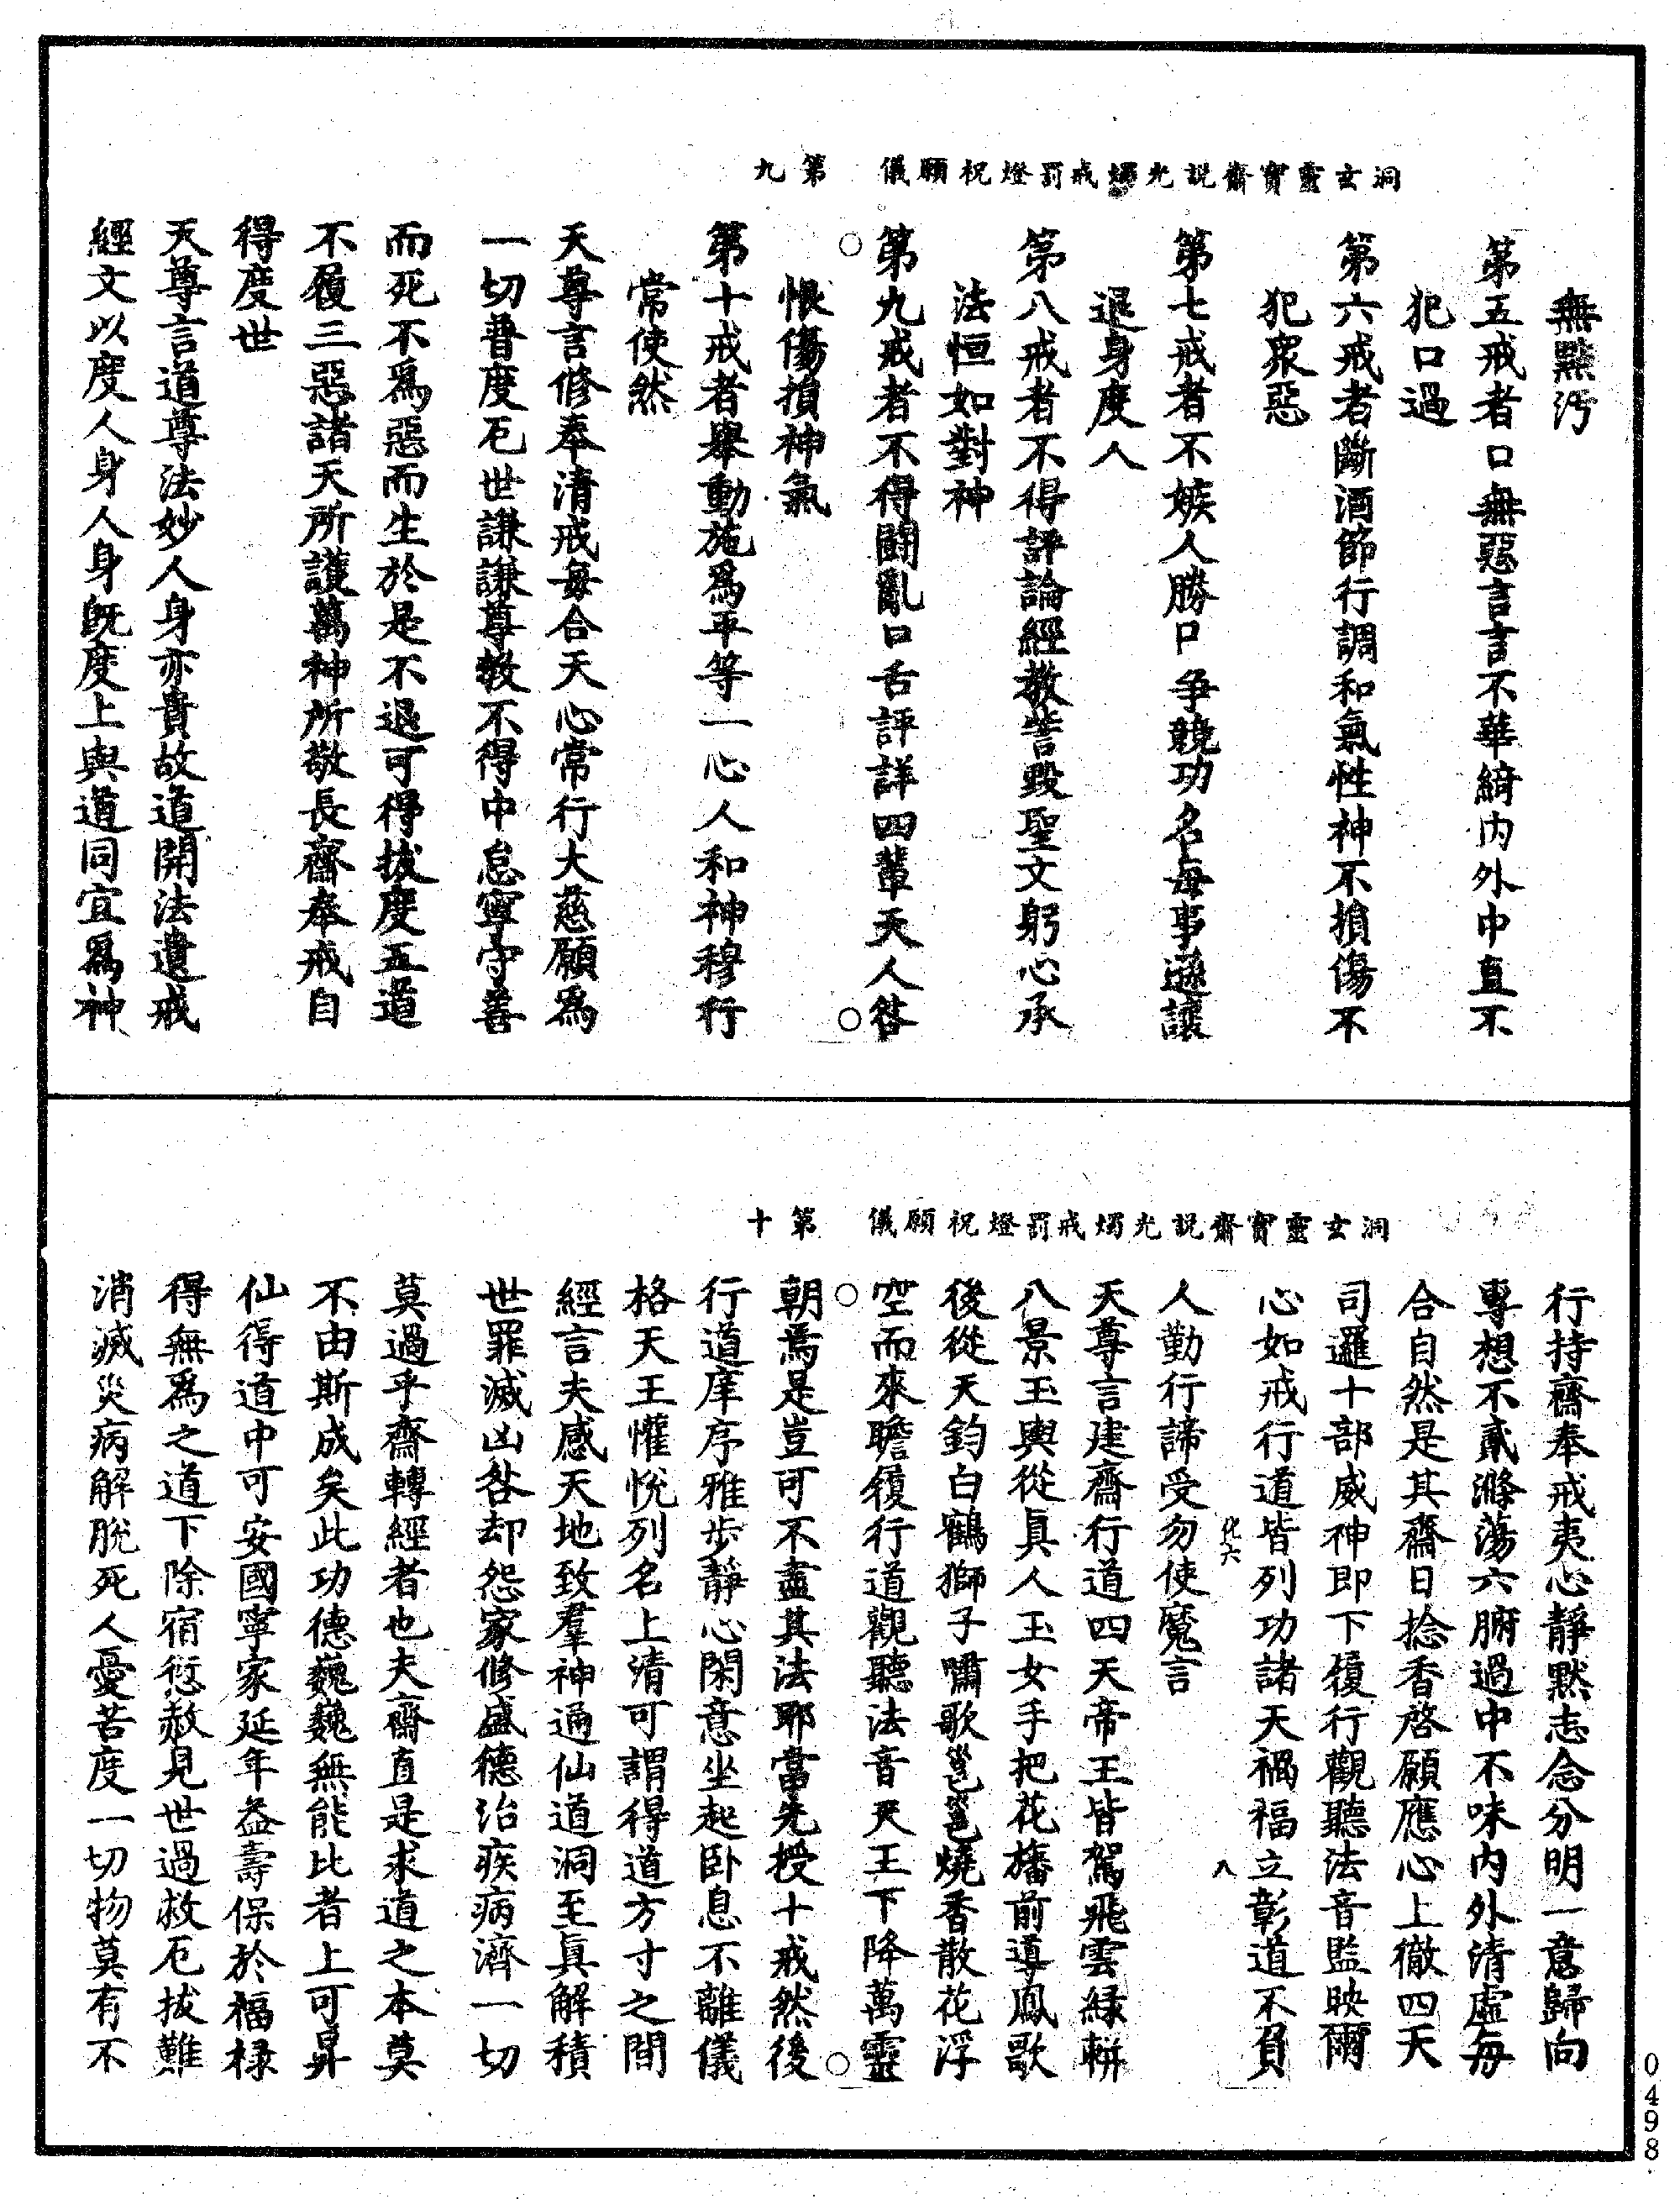 洞玄靈寶齋說光燭戒罰燈祝願儀　第九
無點污
第五戒者口無惡言言不華綺內外中直不
犯口過
第六戒者斷酒節行調和氣性神不損傷不
犯眾惡
第七戒者不嫉人勝己爭競功名每事遜讓
退身度人
第八戒者不得評論經教訾毀聖文躬心承
法恒如對神
第九戒者不得鬪亂口舌評詳四輩天人咎
恨傷損神氣
第十戒者舉動施為平等一心人和神穆行
常使然
天尊言修奉清戒每合天心常行大慈願為
一切普度厄世謙謙尊教不得中怠寧守善
而死不為惡而生於是不退可得拔度五道
不履三惡諸天所護萬神所敬長齋奉戒自
得度世
天尊言道尊法妙人身亦貴故道開法遺戒
經文以度人身人身既度上與道同宜為神
洞玄靈寶齋說光燭戒罰燈祝願儀　第十
行持齋奉戒夷心靜默志念分明一意歸向
專想不貳滌蕩六腑過中不味內外清虛每
合自然是其齋日捻香啓願應心上徹四天
司邏十部威神即下履行觀聽法音監映爾
心如戒行道皆列功諸天禍福立彰道不負
化六　八
人勤行諦受勿使魔言
天尊言建齋行道四天帝王皆駕飛雲綠軿
八景玉輿從真人玉女手把花旛前導鳳歌
後從天鈞白鶴獅子嘯歌邕邕燒香散花浮
空而來瞻履行道觀聽法音天王下降萬靈
朝焉是豈可不盡其法耶當先授十戒然後
行道庠序雅步靜心閑意坐起臥息不離儀
格天王懽悅列名上清可謂得道方寸之間
經言夫感天天地致羣神通仙道洞至真解積
世罪滅凶咎却怨家修盛德治疾病濟一切
莫過乎齋轉經者也夫齋直是求道之本莫
不由斯成矣此功德巍巍無能比者上可昇
仙得道中可安國寧家延年益壽保於福祿
得無為之道下除宿愆赦見世過救厄拔難
消滅災病解脫死人憂苦度一切物莫有不
0498